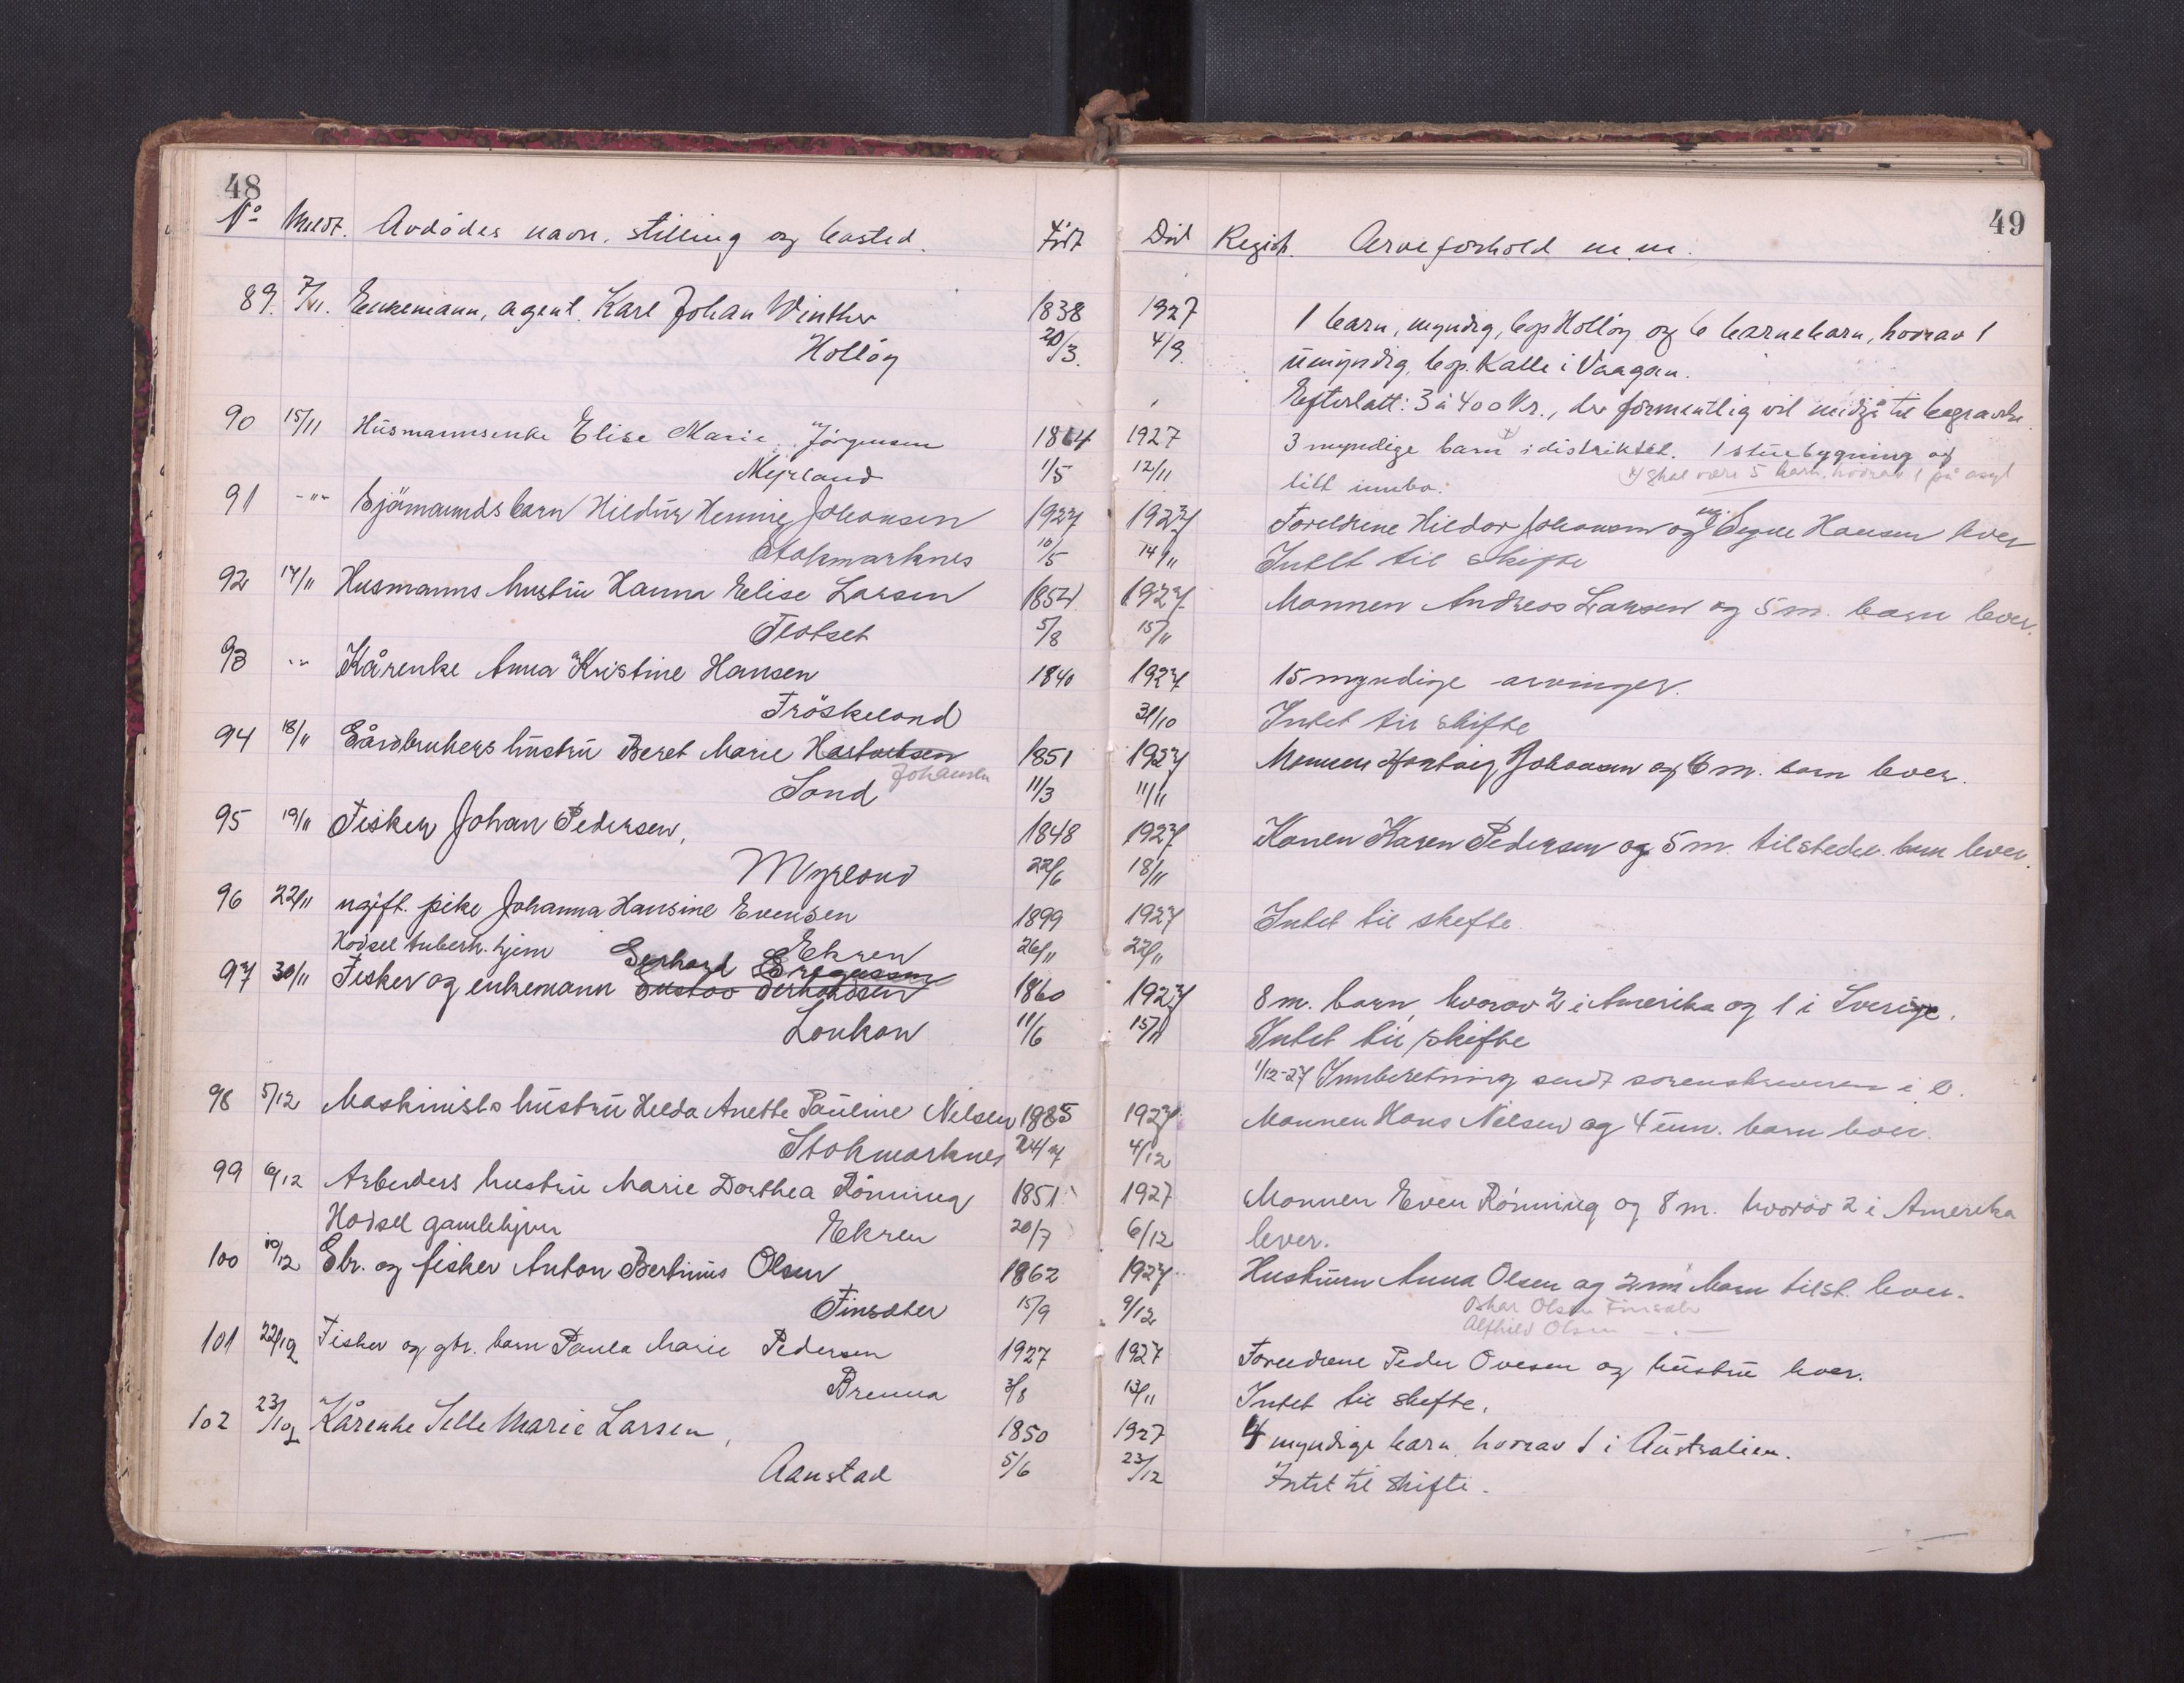 48
49
No Meldt. Avdødes navn, stilling og bosted. Født Død Registr. Arveforhold m.m.
89. 7/11. Enkemann, agent Karl Johan Winther 1838 1927 1 barn, myndig, bop. Holløy og 6 barnebarn, hvorav 1
Holløy 20/3. 4/9. umyndig, bop. Kalle i Vaagan.
Efterlatt: 3 à 400 kr., der formentlig vil medgå til begravelse
90 15/11 Husmannsenke Elise Marie Jørgensen 1864 1927 3 myndige barn x) i distriktet. 1 stuebygning og
Myrland 1/5 12/11 litt innbo. x) Skal være 5 barn, hvorav 1 på asyl
91 -"- Sjømannds barn Hildur Hennie Johansen 1927 1927 Foreldrene Hildor Johansen og Signe Hansen lever
Stokmarknes 10/5 14/11 Intet til skifte
92 17/11 Husmanns hustru Hanna Elise Larsen 1854 1927 Mannen Andreas Larsen og 5 m. barn lever.
Flatset 5/8 15/11
93 -"- Kårenke Anna Kristine Hansen 1840 1927 15 myndige arvinger.
Frøskeland 31/10 Intet til skifte
94 18/11 Gårdbrukers hustru Beret Marie Hartvigsen 1851 1927 Mannen Hartvig Johansen og 6 m. barn lever.
Johansen
Sand 11/3 11/11
95 19/11 Fisker Johan Pedersen, 1848 1927 Konen Karen Pedersen og 5 m. tilstedev. barn lever.
Myrland 22/6 18/11
96 22/11 ugift. pike Johanna Hansine Evensen 1899 1927 Intet til skifte
Hadsel tuberk. hjem Ekren 26/11 22/11
Gerhard
97 30/11 Fisker og enkemann Gustav Gerhardsen 1860 1927 8 m. barn, hvorav 2 i Amerika og 1 i Sverige.
Lonkan 11/6 15/11 Intet til skifte
1/12-27 Innberetning sendt sorenskriveren i
98 5/12 Maskinists hustru Helda Anette Pauline Nilsen 1885 1927 Mannen Hans Nilsen og 4 um. barn lever.
Stokmarknes 24/7 4/12
99 6/12 Arbeiders hustru Marie Dorthea Rønning 1851 1927 Mannen Even Rønning og 8 m. hvorav 2 i Amerika
Hadsel gamlehjem Ekren 20/7 6/12 lever.
100 10/12 Gbr. og fisker Anton Bertinus Olsen 1862 1927 Hustruen Anna Olsen og 2 m barn tilst. lever.
Finsæter 15/9 9/12 Oskar Olsen Finsæter
Alfhild Olsen - " -
101 22/12 Fisker og gbr. barn Paula Marie Pedersen 1927 1927 Foreldrene Peder Ovesen og hustru lever.
Brenna 3/8 13/11 Intet til skifte.
102 23/12 Kårenke Selle Marie Larsen, 1850 1927 4 myndige barn, hvorav 1 i Australien.
Aanstad 5/6 23/12 Intet til skifte.